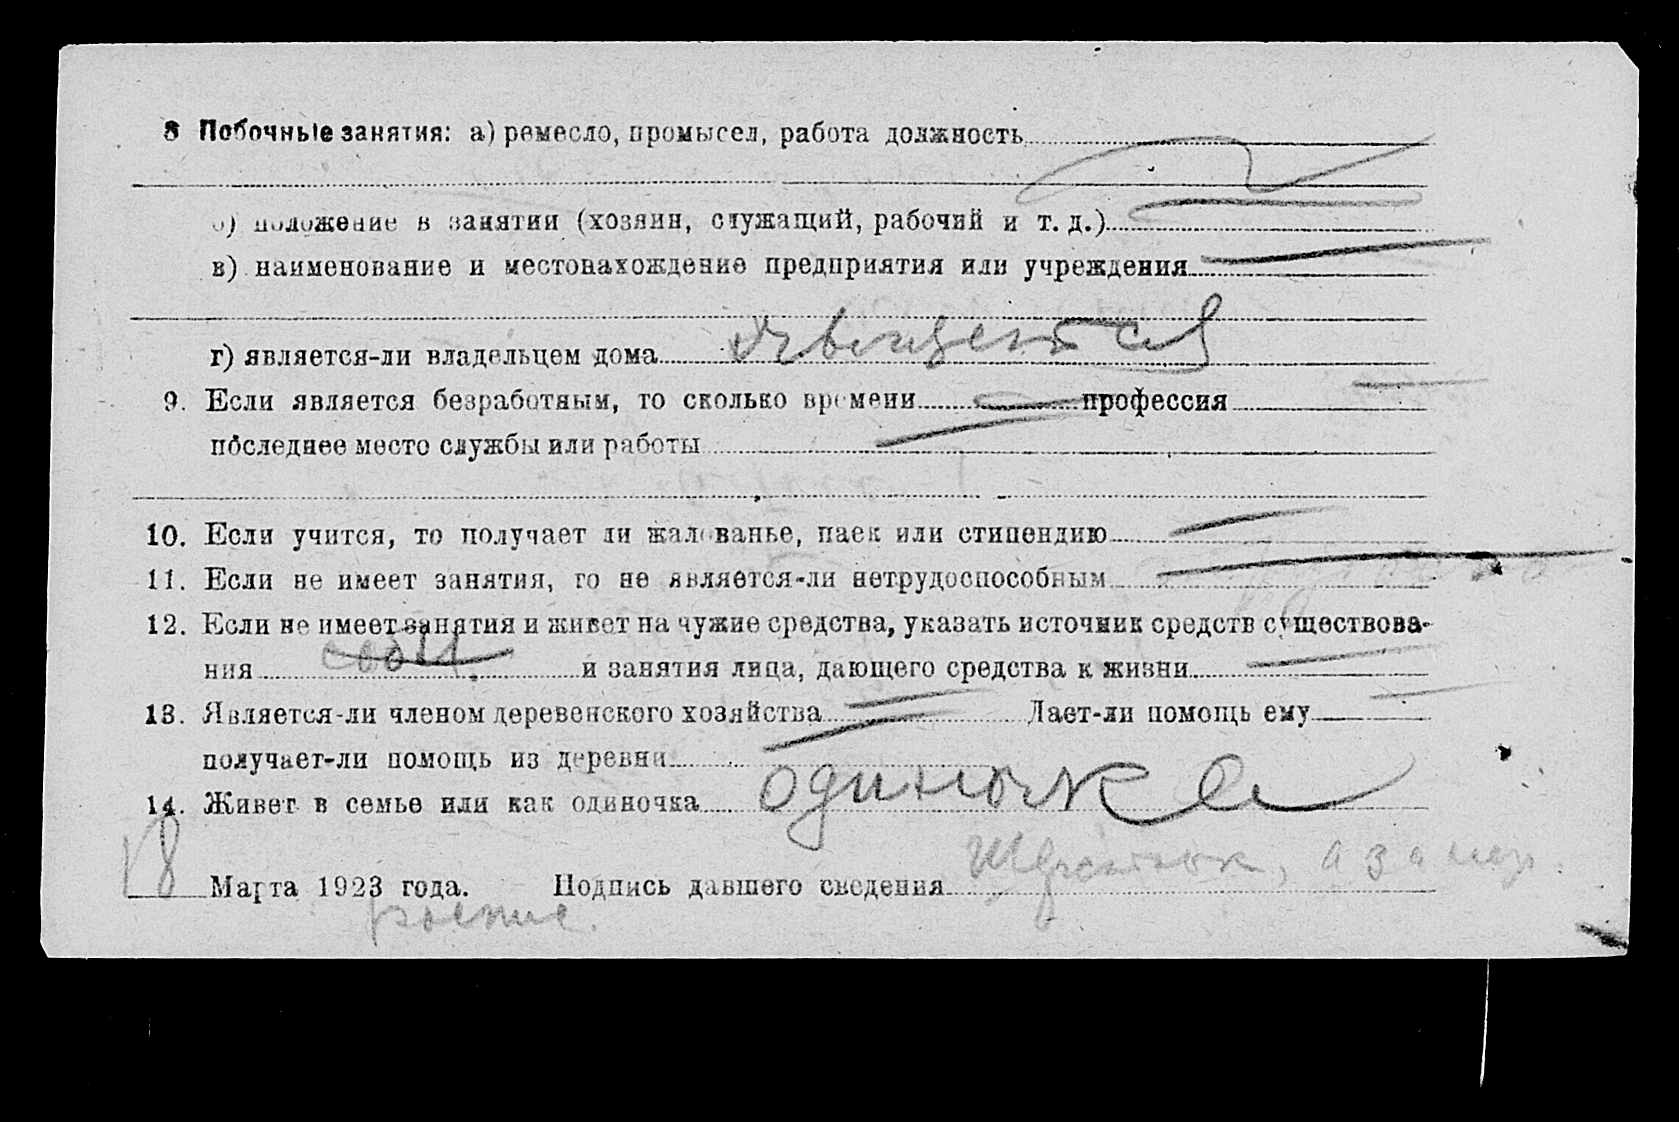 8 Побочные занятия: а) ремесло, промысел, работа должность
б) положение в занятии (хозяин, служащий, рабочий и т. д.)
в) наименование и местонахождение предприятия или учреждения
г) является-ли владельцем дома является
9. Если является безработным, то сколько времени профессия
последнее место службы или работы
10. Если учится, то получает ли жалованье, паек или стипендию
11. Если не имеет занятия, то не является-ли нетрудоспособным
12. Если не имеет занятия и живет на чужие средства, указать источник средств существова-
ния и занятия лица, дающего средства к жизни
13. Является-ли членом деревенского хозяйства Дает-ли помощь ему
получает-ли помощь из деревни
14. Живет в семье или как одиночка одиночка
18 Марта 1923 года. Подпись давшего сведения